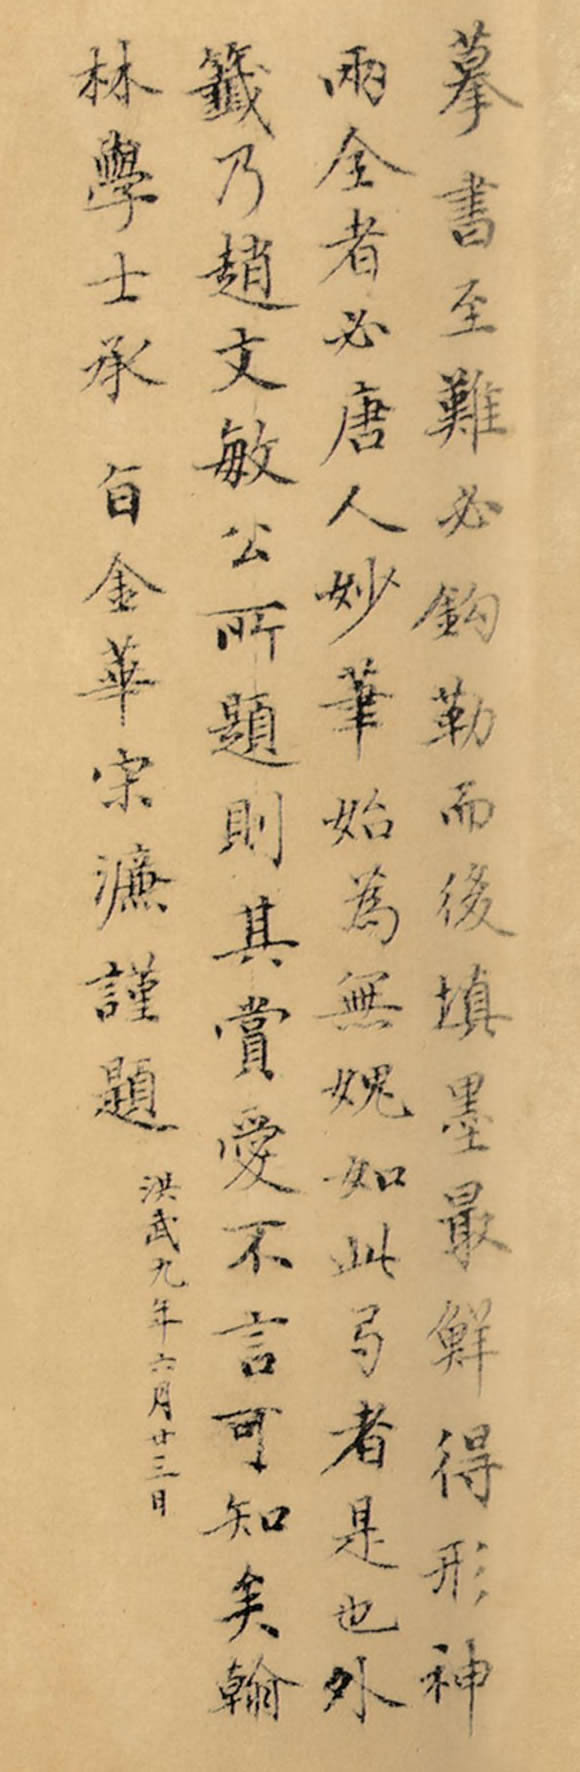 摹書至難必鈎勒而後填墨最鮮得形神
兩全者必唐人妙筆始為無媿如此弓者是也外
籤乃趙文敏公所題則其賞愛不言可知矣翰
林學士承 旨金華宋濂謹題
洪武九年六月廿三日